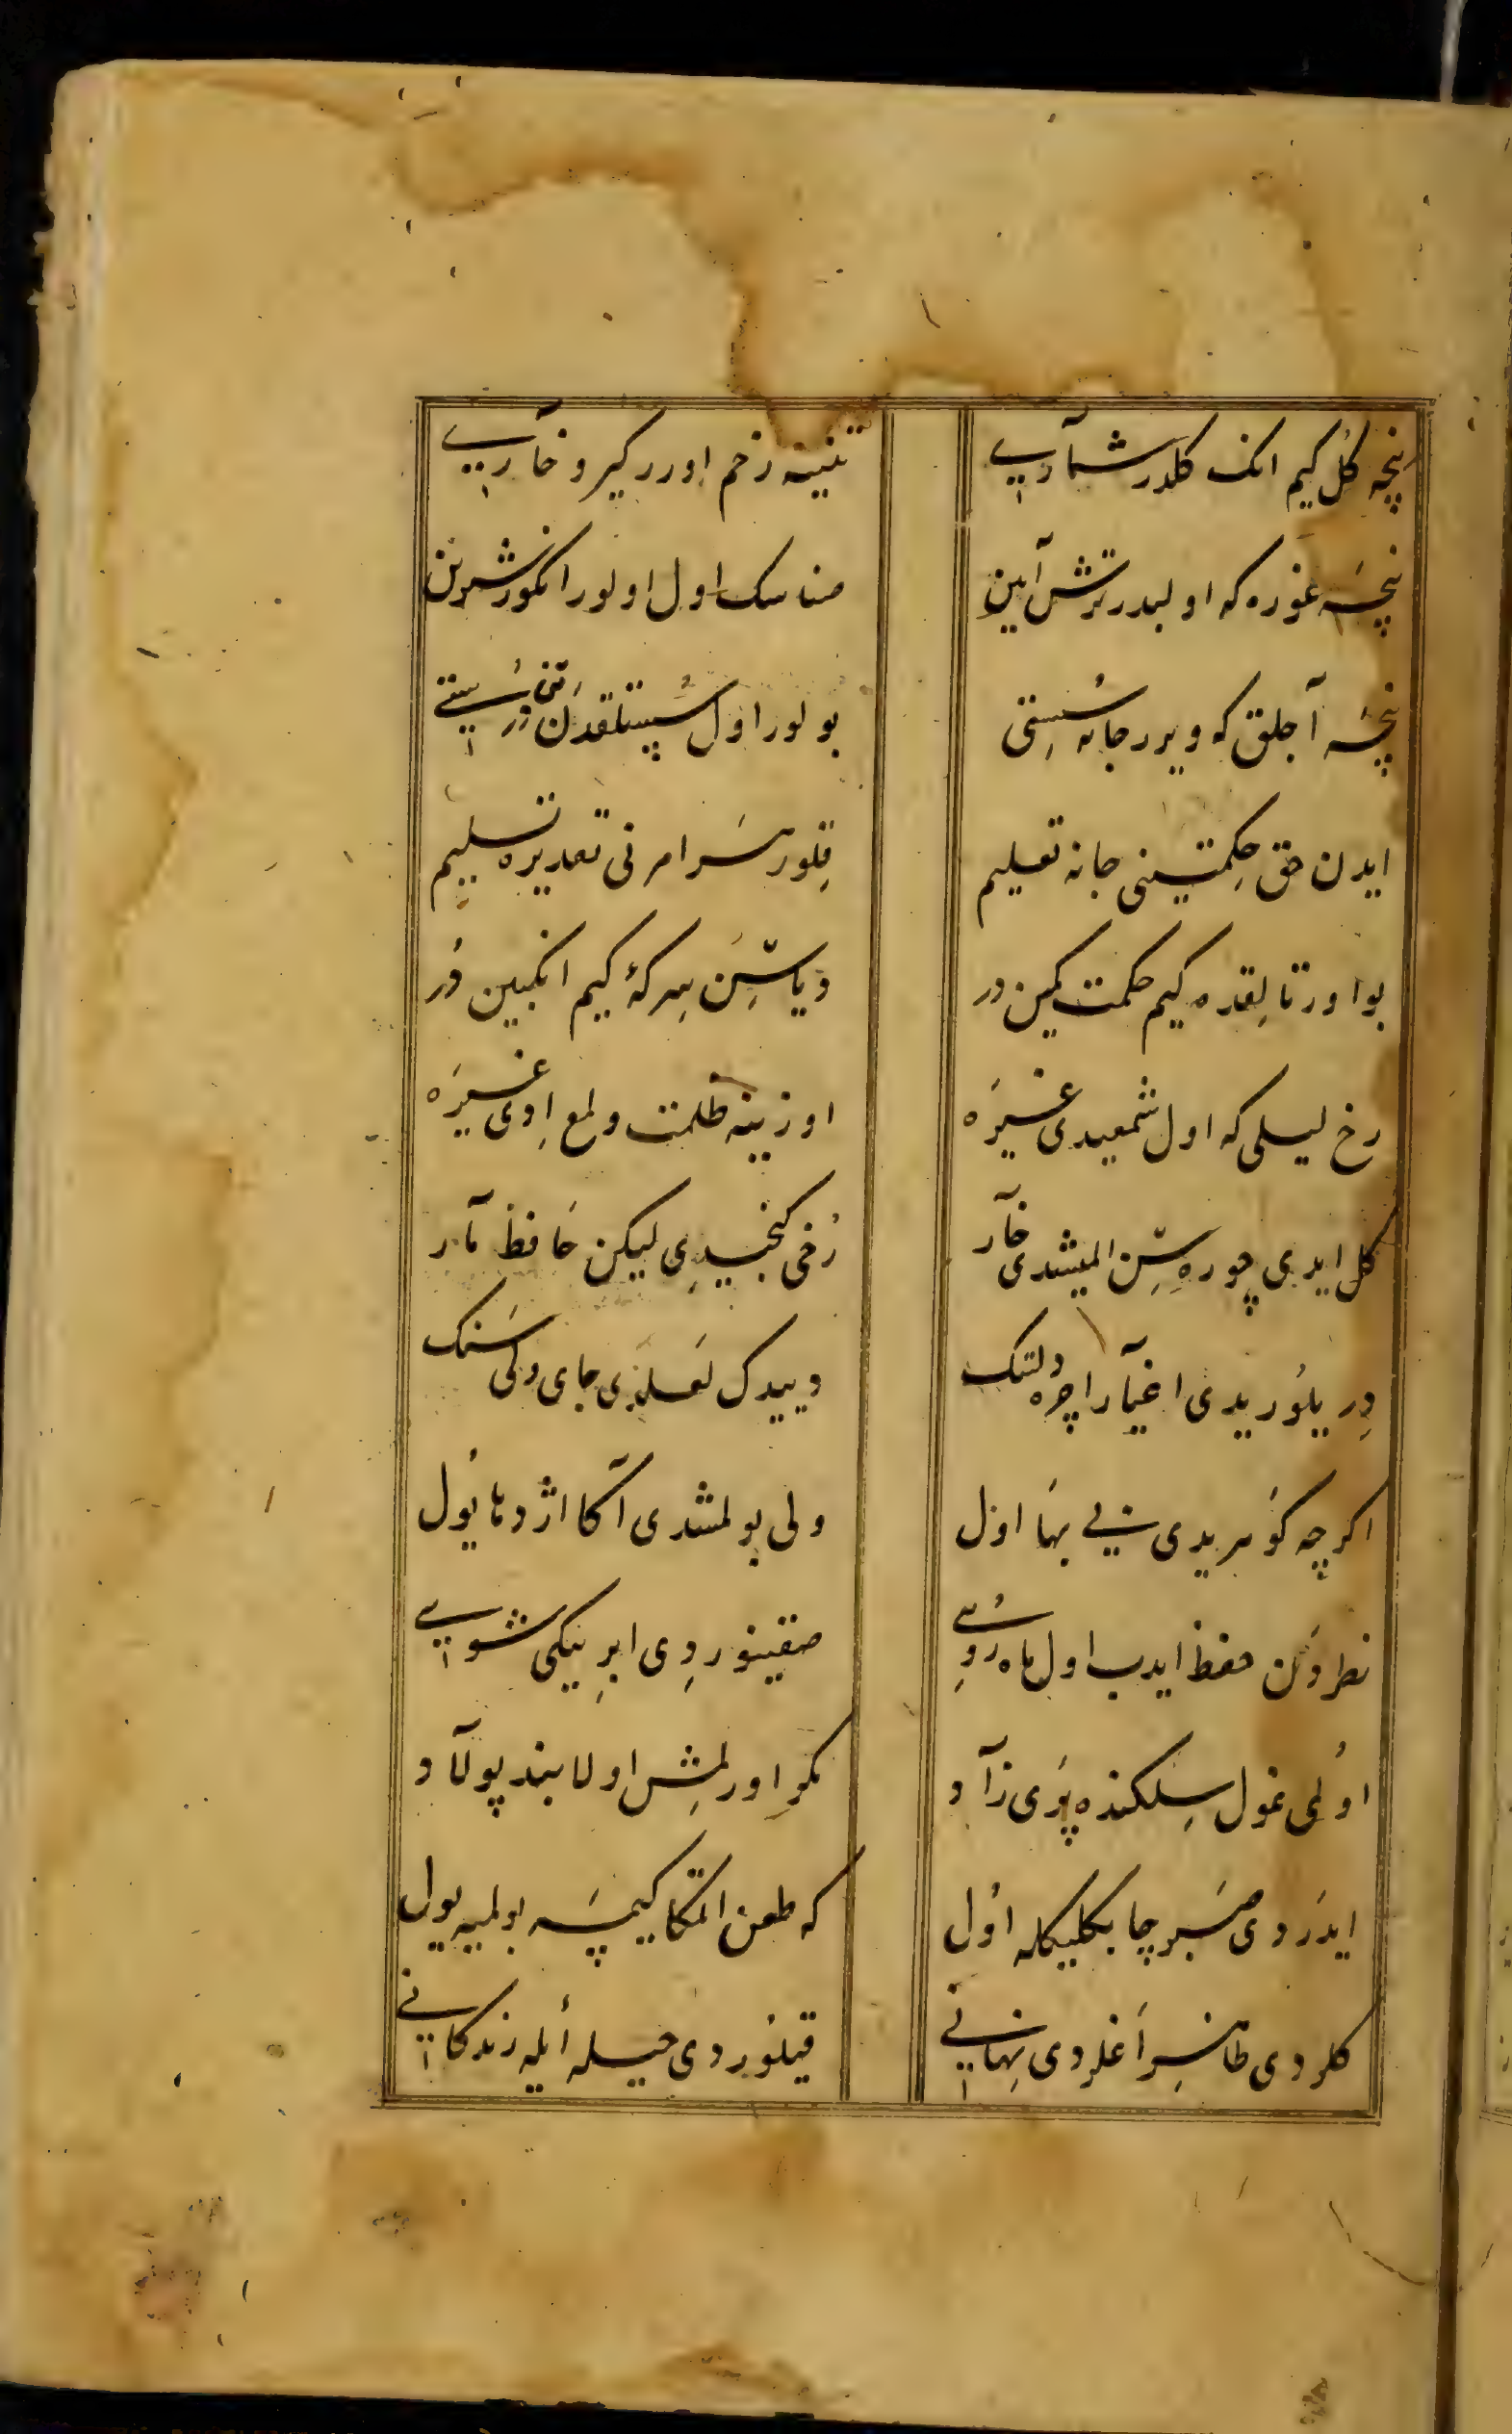 نیچه گل کیم انک کلدر شمآری
تنینه زخم اورر کیرو خآری
نیچه غوره که اولیدر ترش آیین
صناسک اول اولور انکور شیرین
نیچه آجلق که ویرر جانه سستی
بولور اول سستلقدن تن درستی
ایدن حق حکمتینی جانه تعلیم
قلور هر امرنی تقدیره تسلیم
بو اورتالقده کیم حکمت کمین در
سرکه کیم انکبین در
رخ لیلی که اول شمعیدی غیره
اوزینه ظلمت ولمع اودی غیره
کل ایدی چوره سن المیشدی خآر
رخی کنجیدی لیکن حافظ مآر
در یلوریدی اغیآر اچره دلتنک
دییدک لعلیدی جای دلی سنک
اکرچه کوهریدی بی بها اول
ولی بولمشدی آکا اژدها یول
نظردن حفظ ایدب اول ماه روی
صقینوردی ابر بیکی شوی
اولی غول سلکنده پری زآد
مکر اورلمش اولا بند پولآد
ایدردی صبر چابکلیکله اول
که طعن اتمکا کیمسه بولمیه یول
کلردی ظاهرا اغلردی نهانی
قیلوردی حیله ایله زندکانی